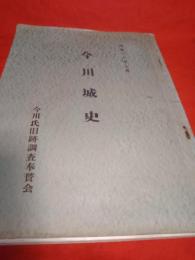 今川城史
今川氏旧跡調査奉賛会